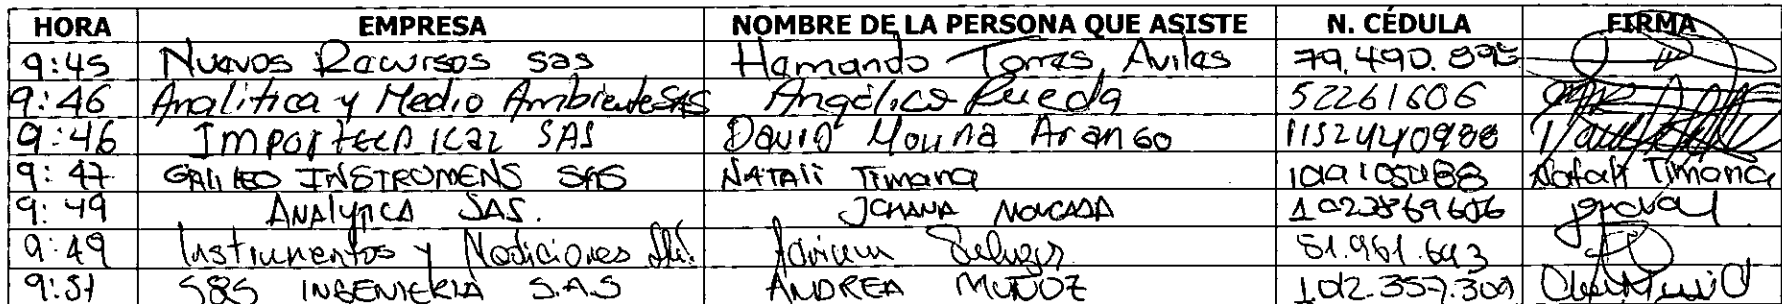 HORA EMPRESA NOMBRE DE LA PERSONA QUE ASISTE N. CÉDULA FIRMA
9:45 Nuevos Recursos sas Hernando Torres Aviles 79.490.895
9:46 Analitica y Medio Ambiente SAS Angélica Rueda 52261606
9:46 Importecnical SAS David Molina Arango 1152440988
9:47 GALILEO INSTRUMENS SAS NATALi Timana Natali Timana
9:49 ANALYTICA SAS. JOHANA 1023869606
9:49 Instrumentos y Mediciones 51.961.643
9:51 S&S INGENIERIA S.A.S ANDREA MUÑOZ 1.012.357.309